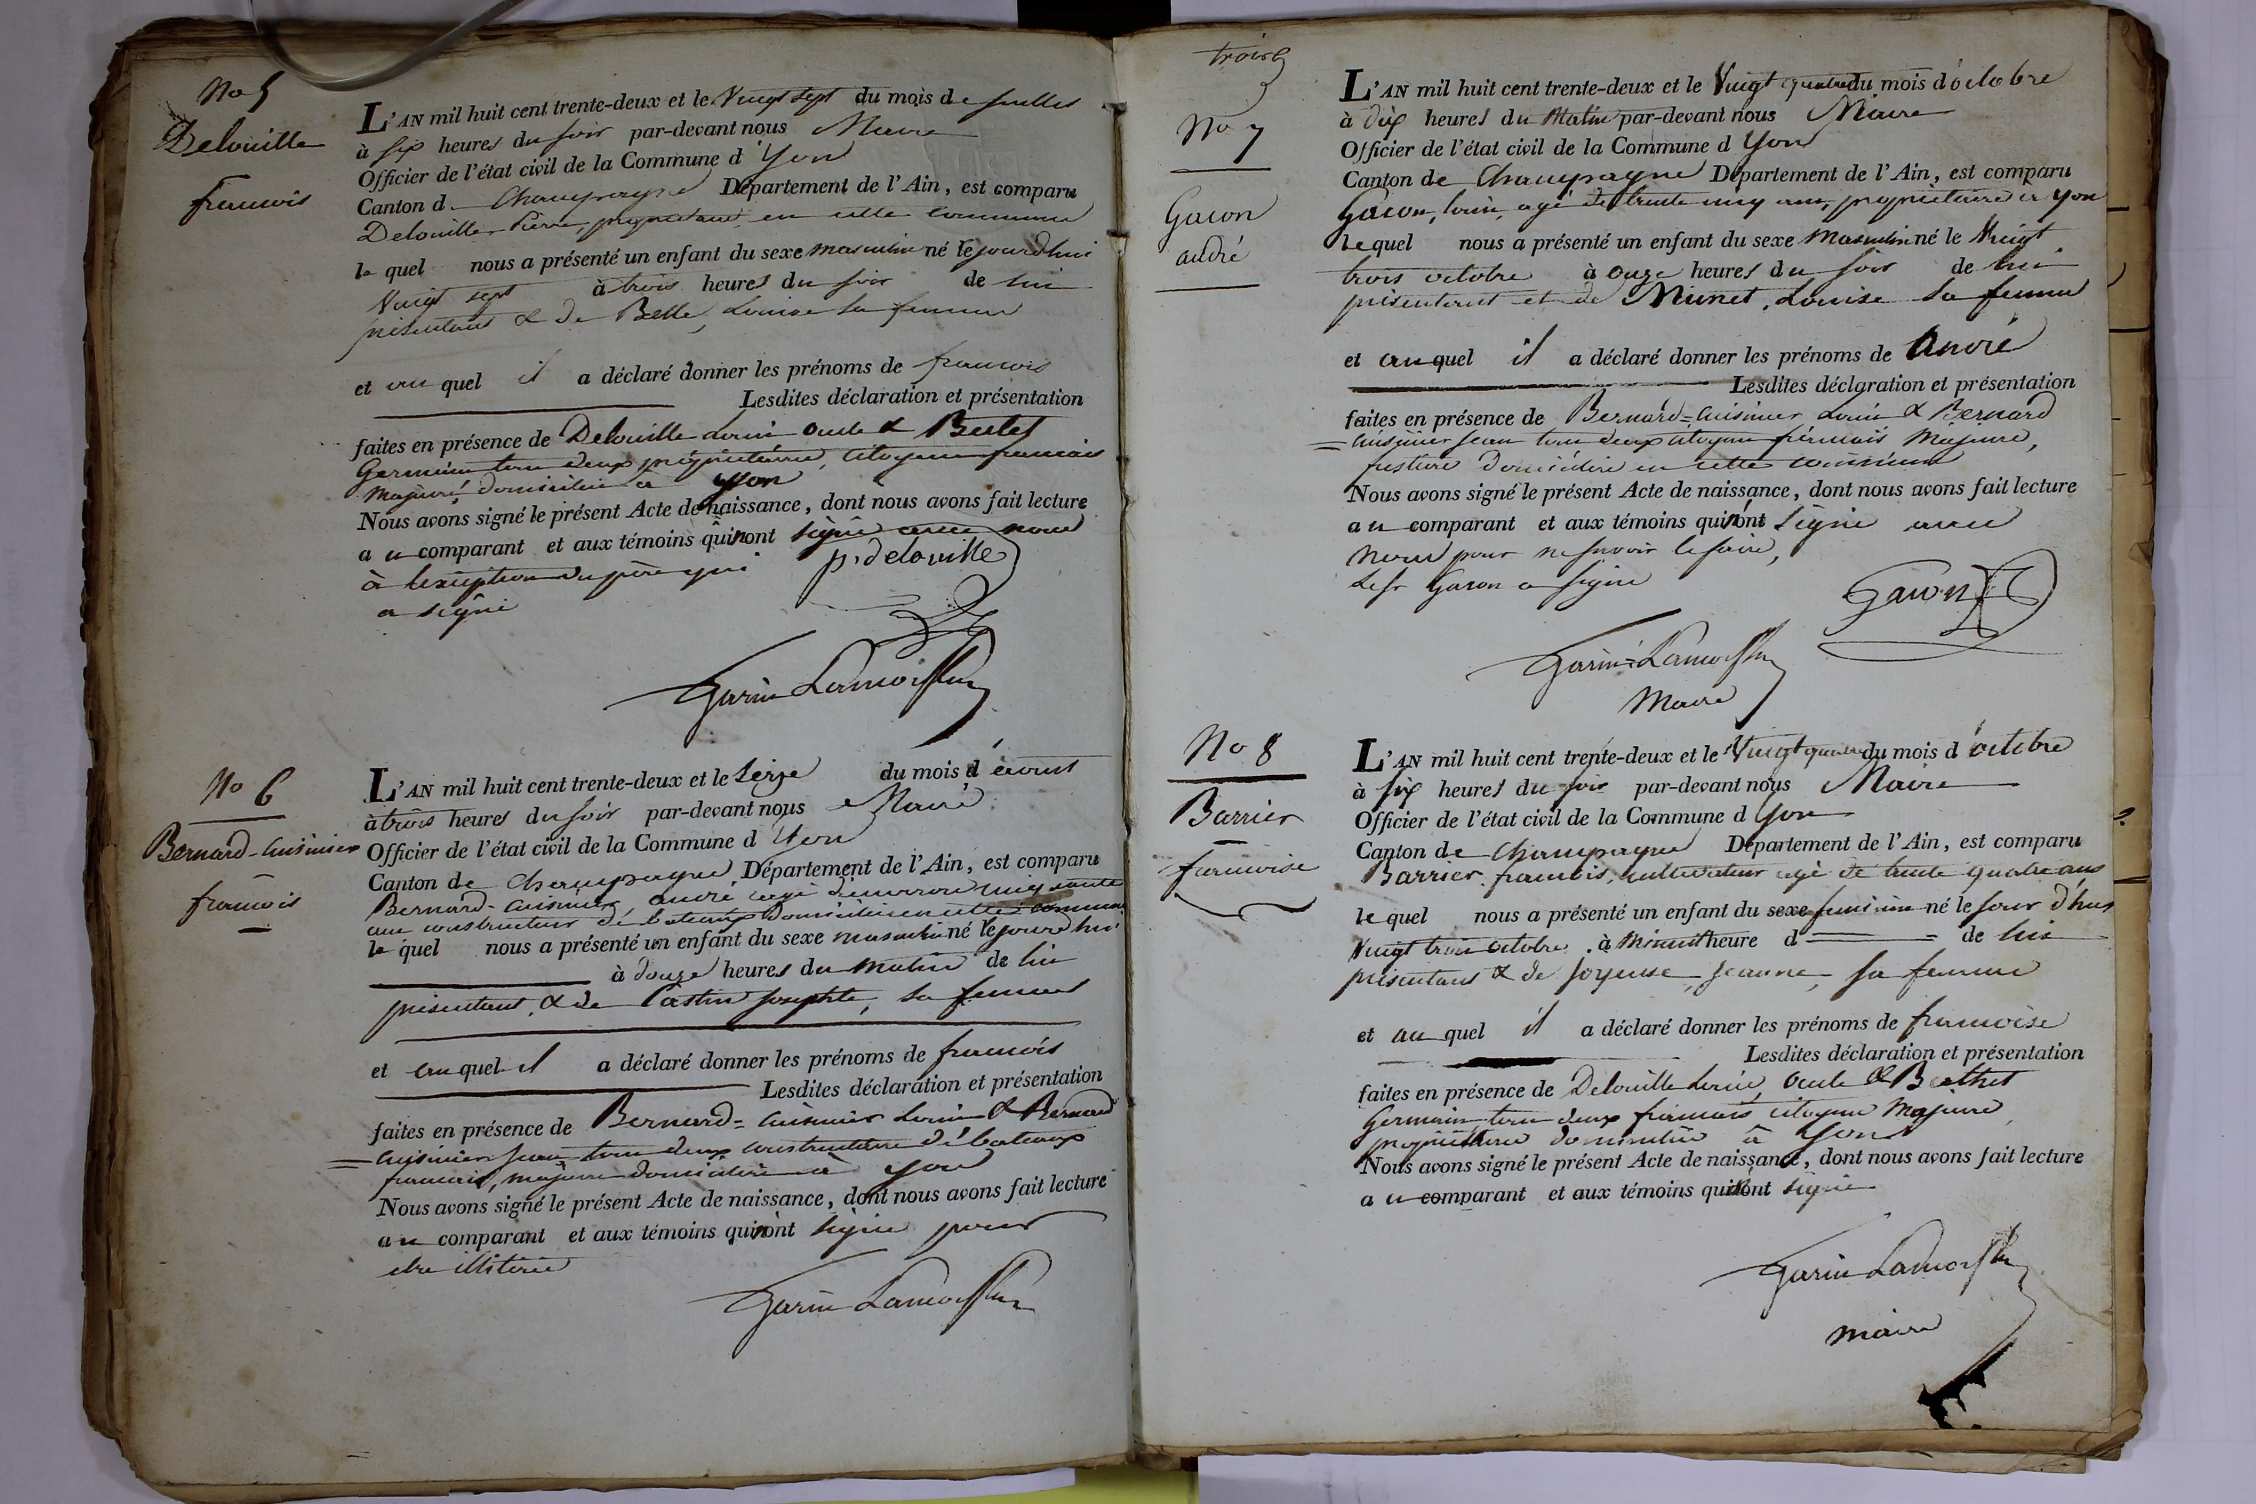 No 5
Delouille
francois
L'AN mil huit cent trente-deux et le Vingt sept du mois de juillet
à six heures du soir par-devant nous Maire
Officier de l'état civil de la Commune d'Yon
Canton d Champagne Département de l'Ain, est comparu
Delouille Pierre, propriétaire en cette commune
le quel nous a présenté un enfant du sexe masculin né le jourdhui
Vingt sept à trois heures du soir de lui
présentant & de Belle, Louise sa femme
et au quel il a déclaré donner les prénoms de francois
Lesdites déclaration et présentation
faites en présence de Delouille Louis oncle & Berlet
Germain tous deux propriétaires, citoyens francais
majeurs domiciliés à Yon
Nous avons signé le présent Acte de naissance, dont nous avons fait lecture
au comparant et aux témoins qui n'ont signé avec nous
à l'exception du père qui
a signé
p. delouille
Garin Lamorflan
No 6
Bernard-Cuisinier
francois
L'AN mil huit cent trente-deux et le seize du mois d'aoust
à trois heures du soir par-devant nous Maire
Officier de l'état civil de la Commune d'Yon
Canton de Champagne Département de l'Ain, est comparu
Bernard-Cuisinier, andré agé d'environ cinquante
ans constructeur de bateaux domicilié en cette commune
le quel nous a présenté un enfant du sexe masculin né le jourdhui
à douze heures du matin de lui
présentant, & de Castin Josephte, sa femme
et au quel il a déclaré donner les prénoms de francois
Lesdites déclaration et présentation
faites en présence de Bernard=Cuisinier Louis & Bernard
=Cuisinier Jean tous deux constructeurs de bateaux
francais, majeurs domiciliés à Yon
Nous avons signé le présent Acte de naissance, dont nous avons fait lecture
au comparant et aux témoins qui n'ont signé pour
etre illitérés
Garin Lamorflan
trois
No 7
Gacon
andré
L'AN mil huit cent trente-deux et le Vingt quatre du mois d'octobre
à dix heures du Matin par-devant nous Maire
Officier de l'état civil de la Commune d Yon
Canton de Champagne Département de l'Ain, est comparu
Gacon, Louis, agé de trente cinq ans, propriétaire à Yon
le quel nous a présenté un enfant du sexe Masculin né le Vingt
trois octobre à onze heures du soir de lui
présentant et de Munet, Louise sa femme
et au quel il a déclaré donner les prénoms de André
Lesdites déclaration et présentation
faites en présence de Bernard=Cuisinier Louis & Bernard
=Cuisinier Jean tous deux citoyens francais Majeurs,
domiciliés en cette commune
Nous avons signé le présent Acte de naissance, dont nous avons fait lecture
au comparant et aux témoins qui n'ont signé avec
nous pour ne savoir le faire,
Le sr Gacon a signé
Gacon
Garin=Lamorflan
Maire
No 8
Barrier
francoise
L'AN mil huit cent trente-deux et le Vingt quatre du mois d'octobre
à six heures du soir par-devant nous Maire
Officier de l'état civil de la Commune d Yon
Canton de Champagne Département de l'Ain, est comparu
Barrier francois, cultivateur agé de trente quatre ans
le quel nous a présenté un enfant du sexe feminin né le jour d'hui
Vingt trois octobre à Minuit heure d de lui
présentant & de Joyeuse, Jeanne, sa femme
et au quel il a déclaré donner les prénoms de francoise
Lesdites déclaration et présentation
faites en présence de Delouille Louis, oncle & Berthet
Germain tous deux francais citoyens Majeurs,
propriétaires domiciliés à Yon
Nous avons signé le présent Acte de naissance, dont nous avons fait lecture
au comparant et aux témoins qui n'ont signé
Garin Lamorflan
maire